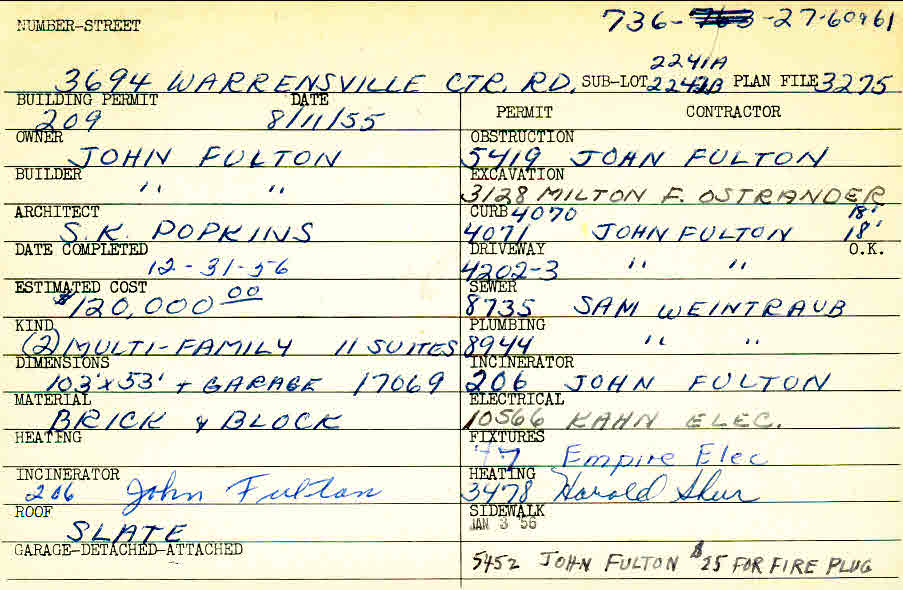 736-763-27-60961
NUMBER-STREET
2241A
3694 WARRENSVILLE CTR. RD. SUB-LOT 2242B PLAN FILE 3275
BUILDING PERMIT DATE
209 8/11/55
OWNER
JOHN FULTON
BUILDER
" "
ARCHITECT
S.K. POPKINS
DATE COMPLETED
12-31-56
ESTIMATED COST
$120,000 00
KIND
(2) MULTI-FAMILY 11 SUITES
DIMENSIONS
103'x53' + GARAGE 17069
MATERIAL
BRICK & BLOCK
HEATING
INCINERATOR
206 John Fulton
ROOF
SLATE
GARAGE-DETACHED-ATTACHED
PERMIT CONTRACTOR
OBSTRUCTION
5419 JOHN FULTON
EXCAVATION
3128 MILTON F. OSTRANDER
CURB 4070 18'
4071 JOHN FULTON 18'
DRIVEWAY O.K.
4202-3 " "
SEWER
8735 SAM WEINTRAUB
PLUMBING
8944 " "
INCINERATOR
206 JOHN FULTON
ELECTRICAL
10566 KAHN ELEC.
FIXTURES
77 Empire Elec
HEATING
3478 Harold Shur
SIDEWALK
JAN 3 56
5452 JOHN FULTON $25 FOR FIRE PLUG